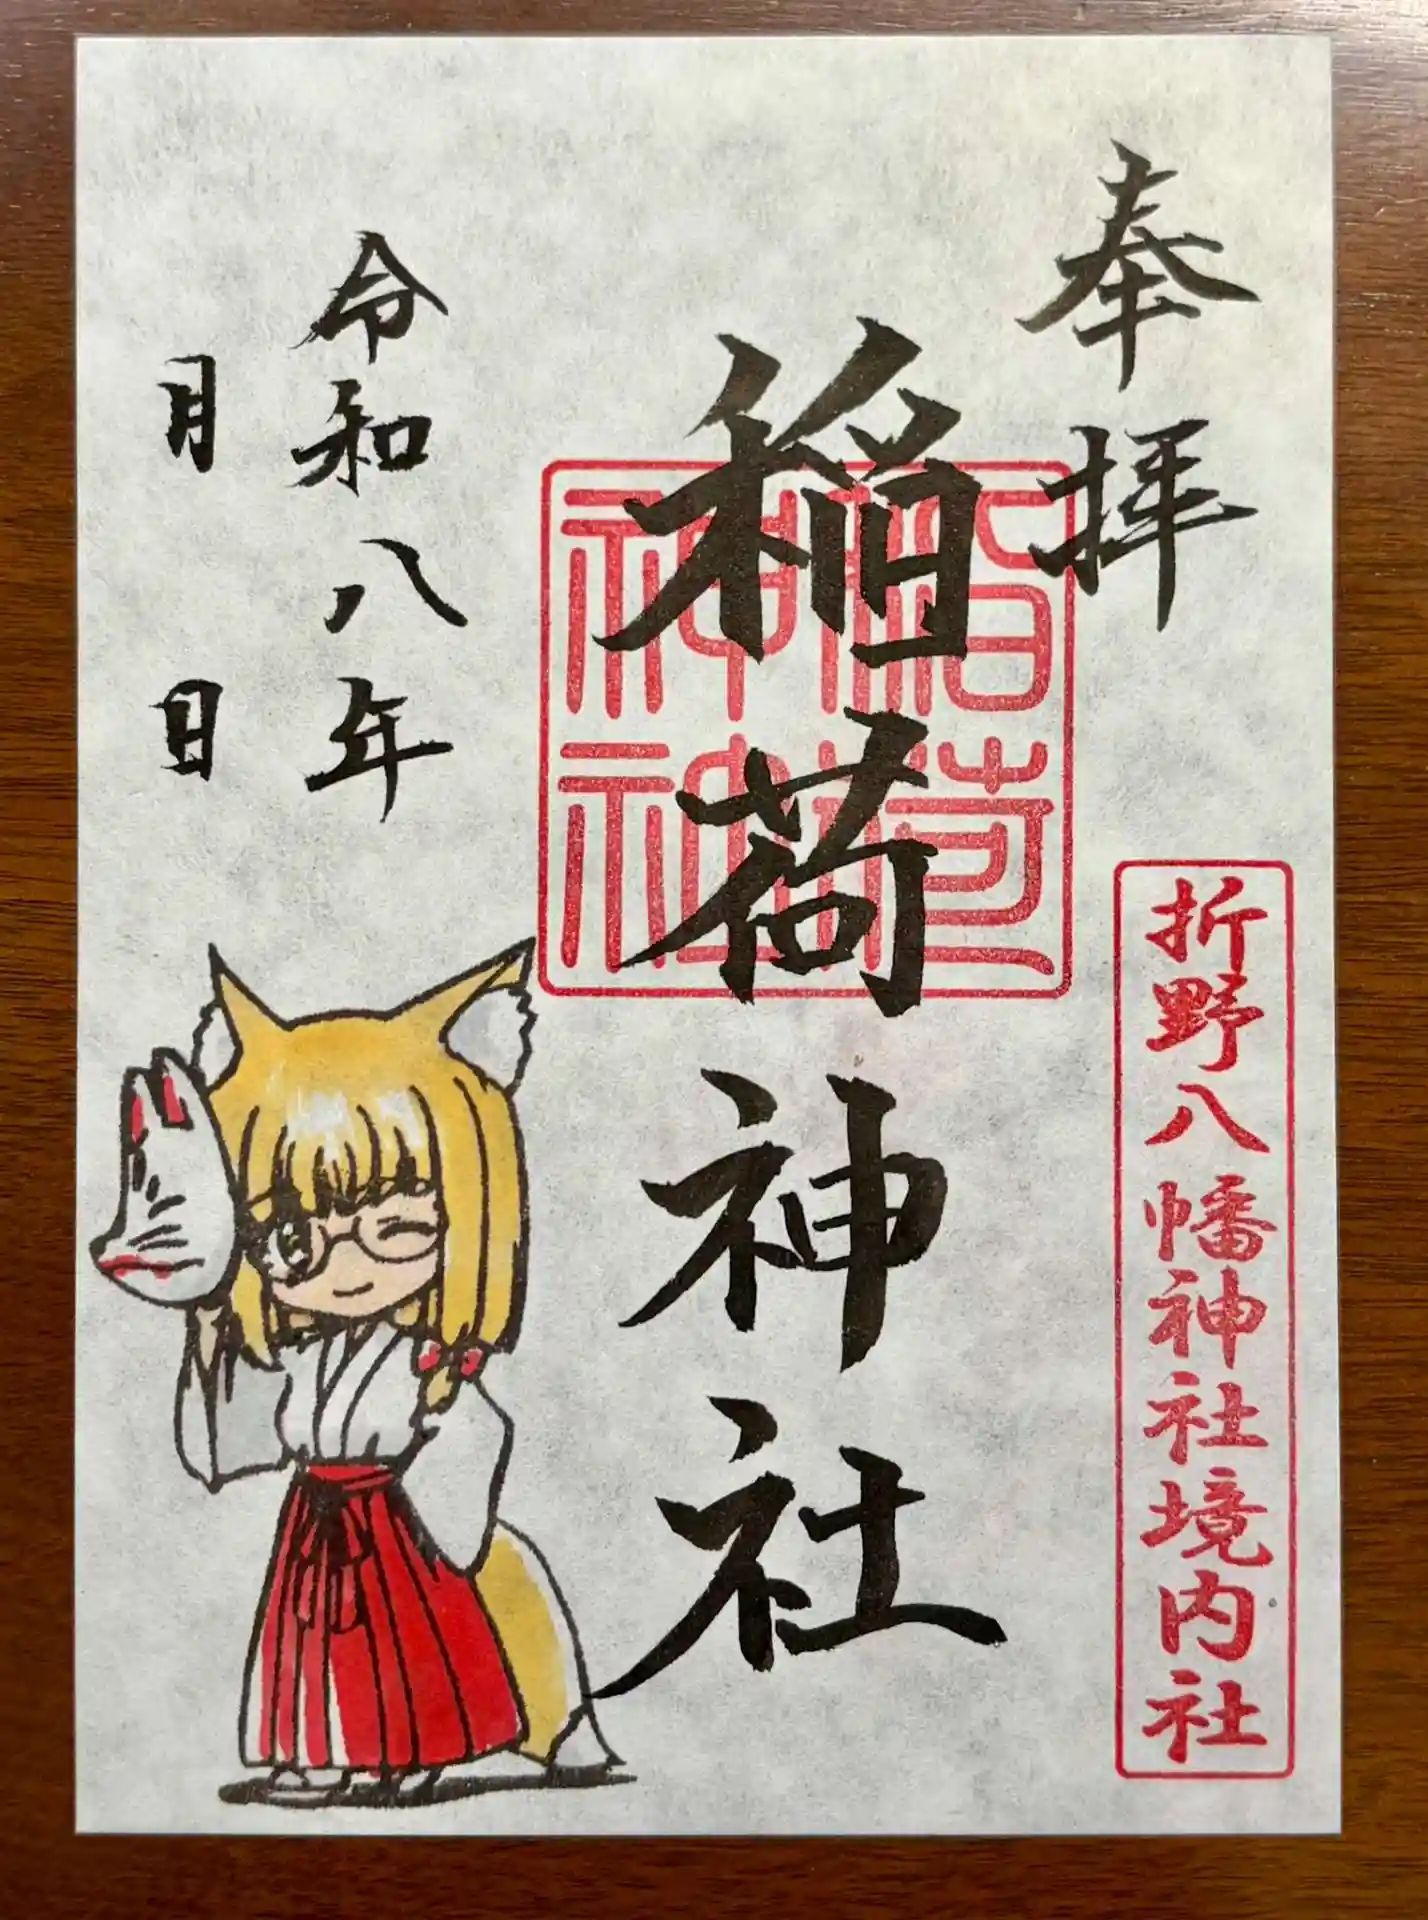 奉拝
折野八幡神社境内社
稲荷神社
稲荷
神社
令和八年
月 日